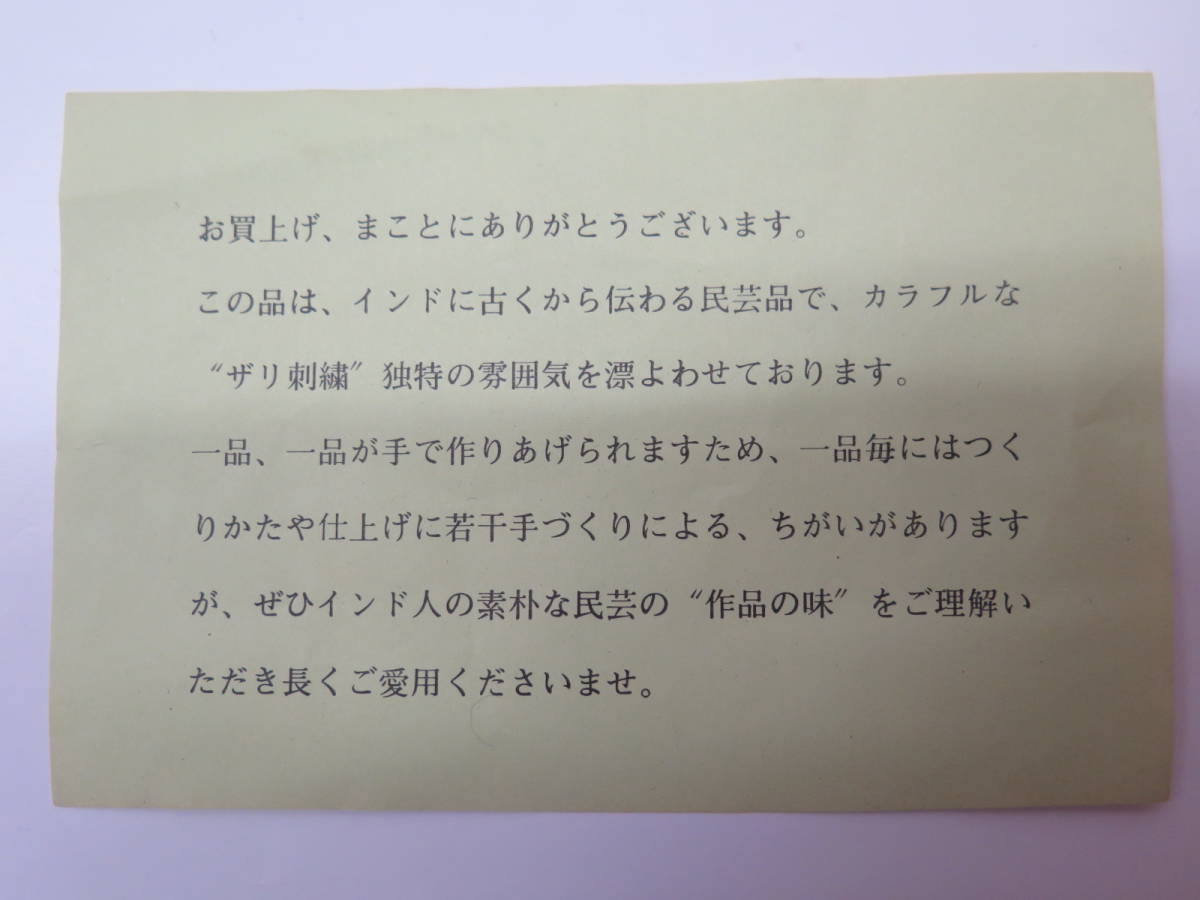 お買上げ、まことにありがとうございます。
この品は、インドに古くから伝わる民芸品で、カラフルな
〝ザリ刺繍〞独特の雰囲気を漂よわせております。
一品、一品が手で作りあげられますため、一品毎にはつく
りかたや仕上げに若干手づくりによる、ちがいがあります
が、ぜひインド人の素朴な民芸の〝作品の味〞をご理解い
ただき長くご愛用くださいませ。